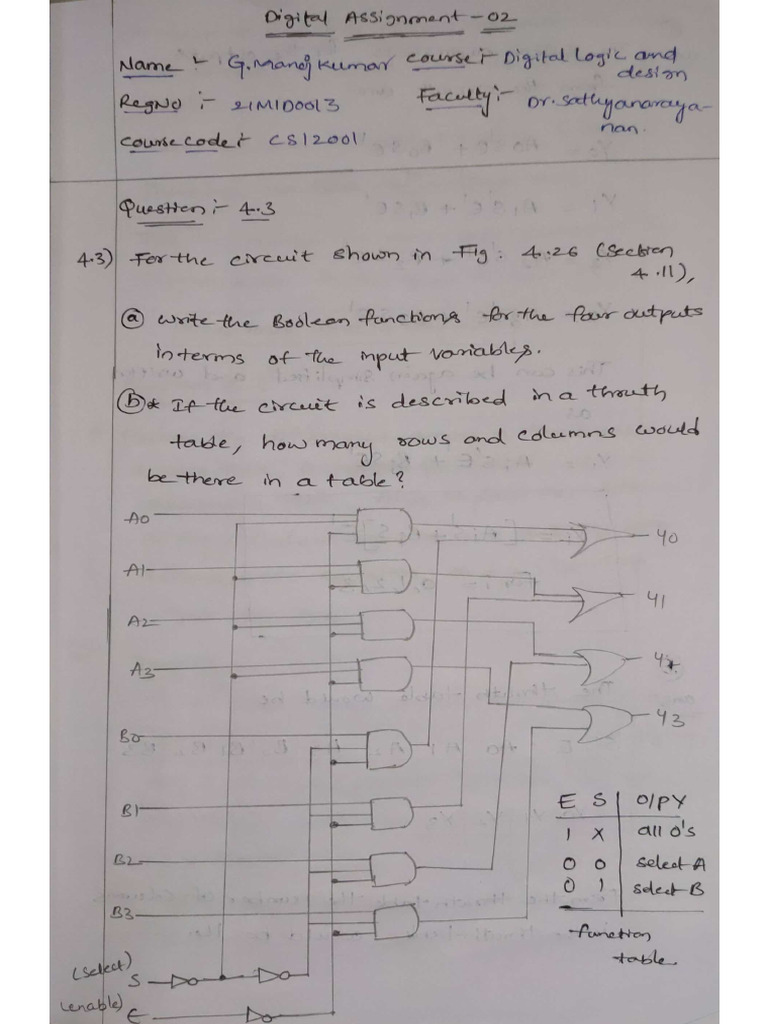 Digital Assignment - 02
Name :- G. Manoj Kumar Course :- Digital Logic and design
RegNo :- 21MID0013 Faculty :- Dr. Sathyanaraya-nan.
Course code :- CSI2001
Question :- 4.3
4.3) For the circuit shown in Fig: 4.26 (Section 4.11),
(a) Write the Boolean functions for the four outputs
in terms of the input variables.
(b)* If the circuit is described in a thruth
table, how many rows and columns would
be there in a table?
A0
Y0
A1
Y1
A2
A3
Y3
B0
B1
E S O/P Y
1 X all 0's
0 0 select A
0 1 select B
function
table
B2
B3
(select) S
(enable) E